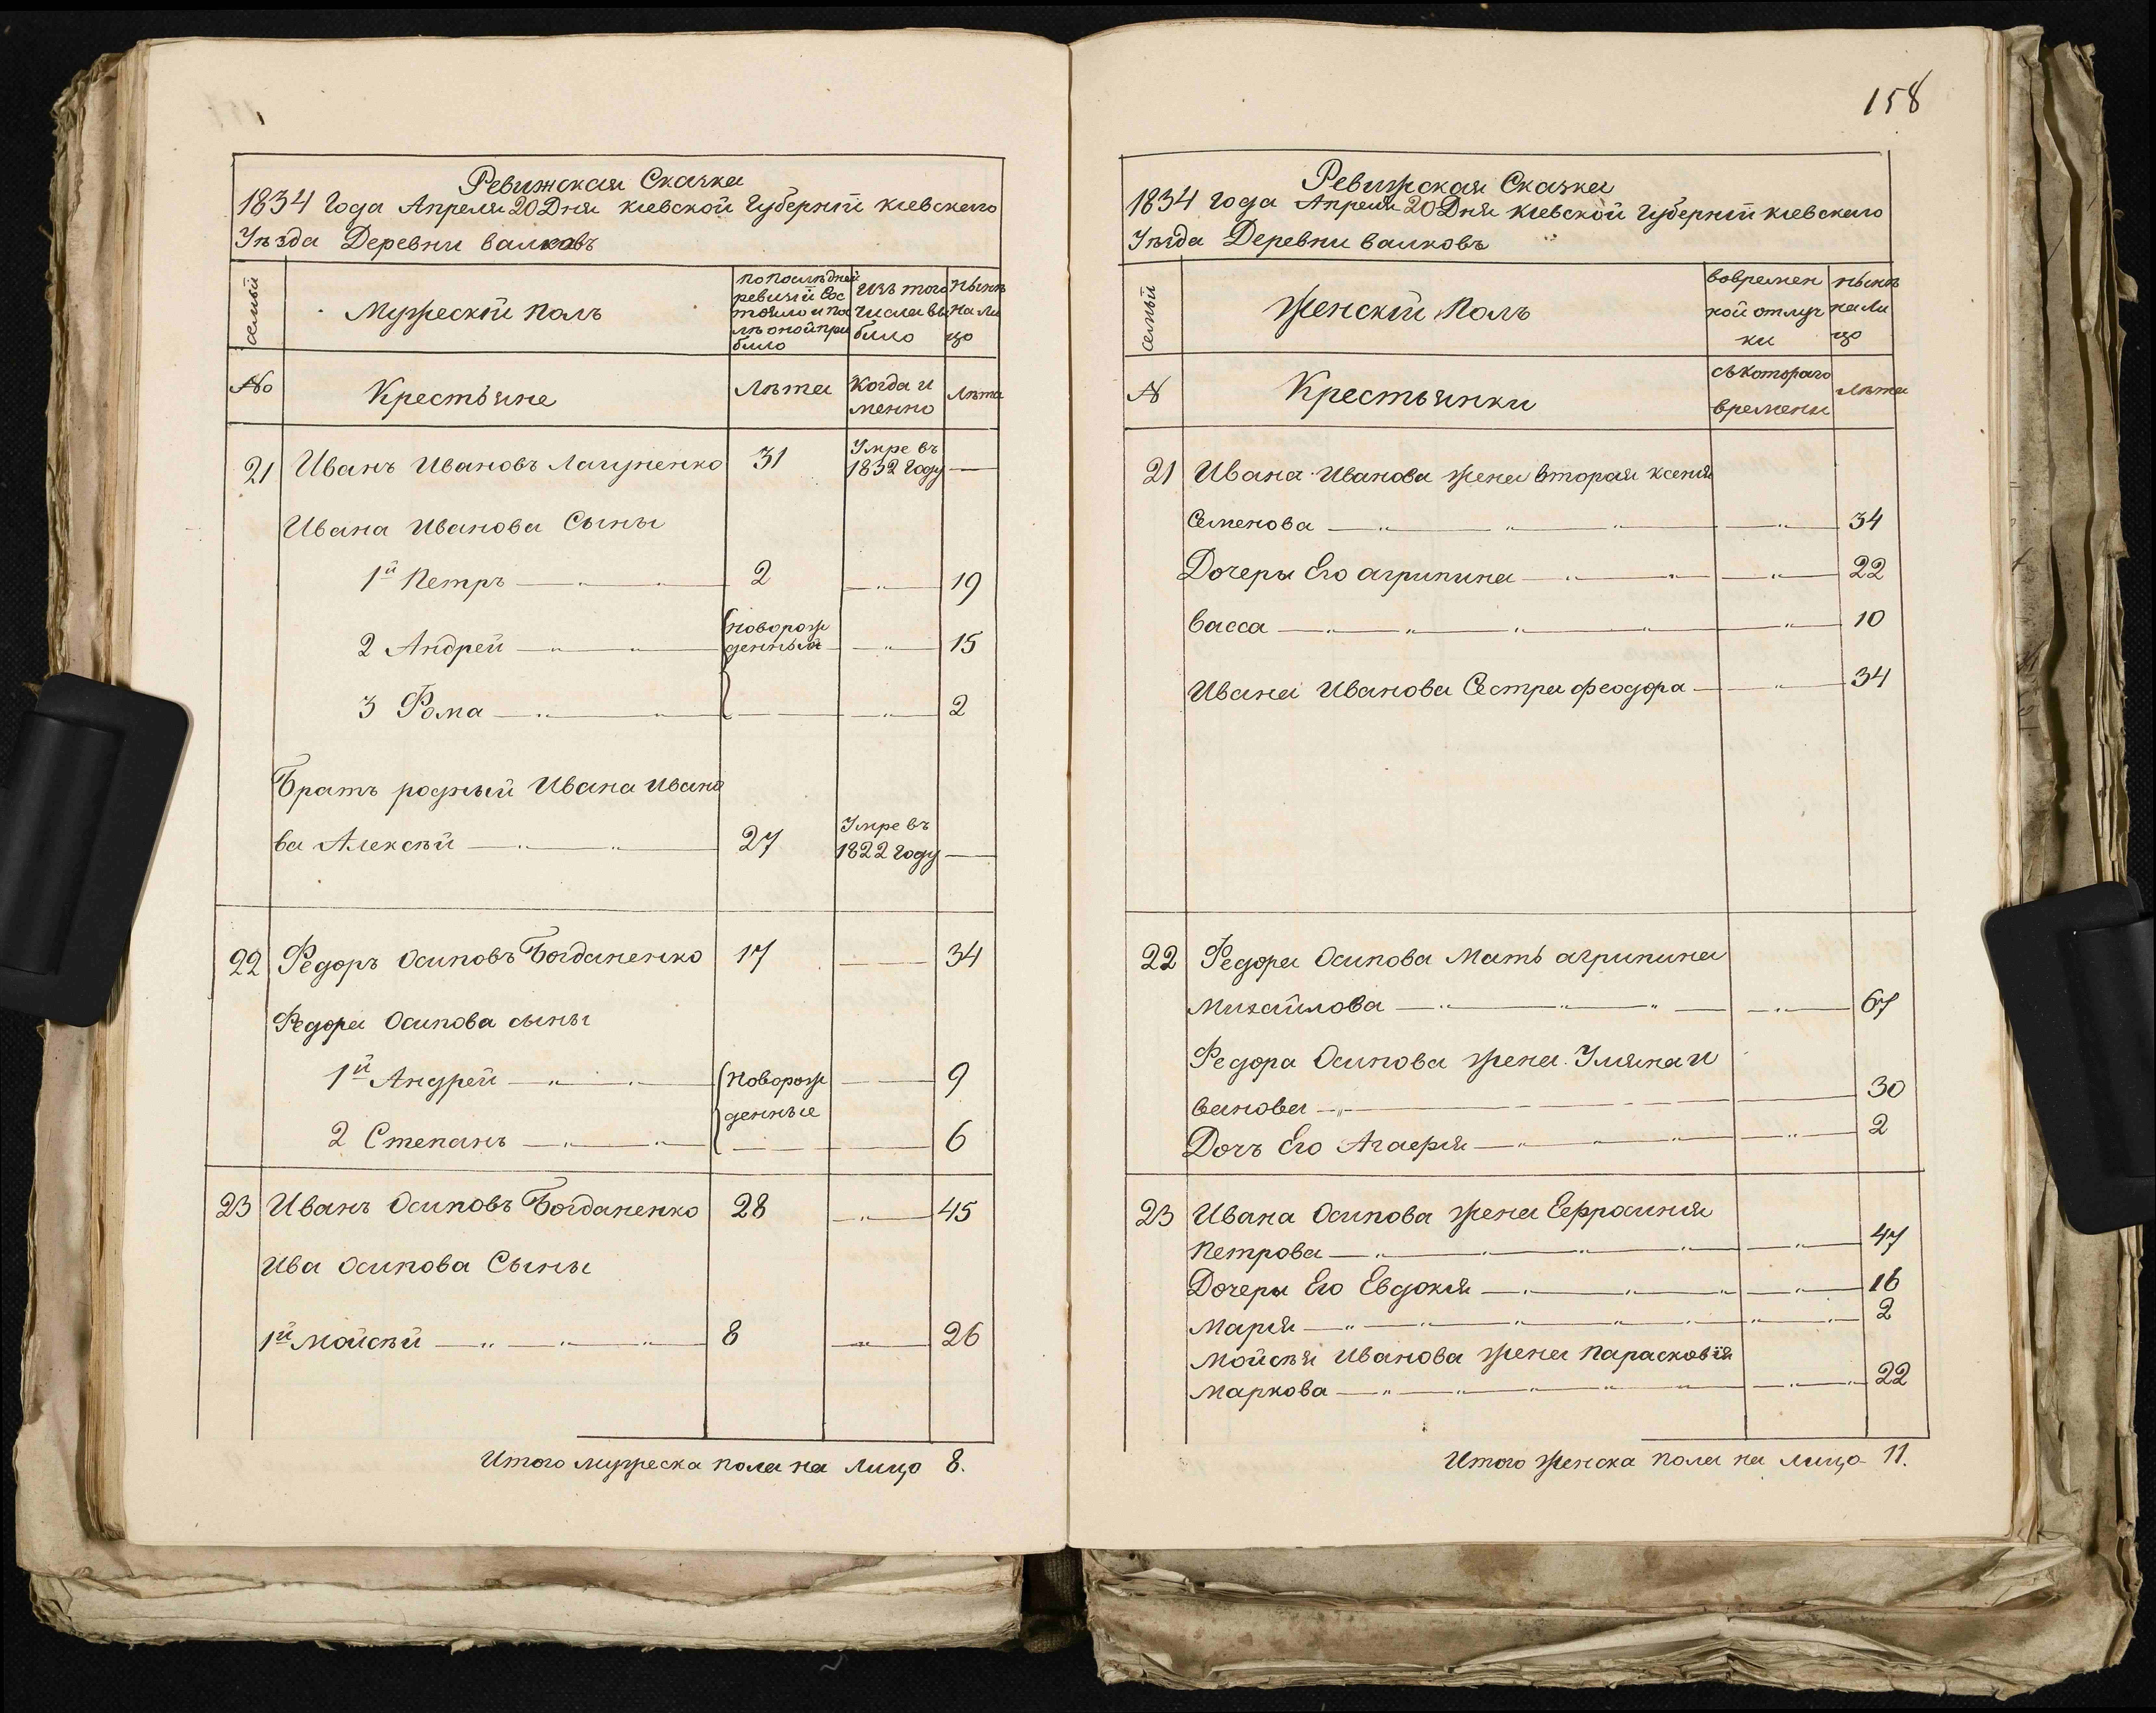 Ревижская Сказка
1834 Года Апреля 20 Дня киевской Губерній киевскаго
Уѣзда Деревни валковъ
семьи
Мужескій полъ
по послѣдней
ревизіи сос
тояло и по
слѣ оной при
было
Изъ того
числа вы
было
Нынѣ
на Ли
цо
№
Крестьяне
Лѣта
Когда и
менно
Лѣта
21 Иванъ Ивановъ Лагуненко 31 Умре въ
1832 Году
Ивана Иванова Сыны
1й Петръ 2 19
2 Андрей новорож
денный 15
3 Фома 2
Братъ родный Ивана Ивано
ва Алексѣй 27 Умре въ
1822 Году
22 Федоръ Осиповъ Богданенко 17 34
Федора Осипова сыны
1й Андрей новорож 9
денные
2 Степанъ 6
23 Иванъ Осиповъ Богданенко 28 45
Ива Осипова Сыны
1й Мойсѣй 8 26
Итого мужеска пола на лицо 8.
158
Ревижская Сказка
1834 года Апреля 20 Дня киевской Губерній киевскаго
Уѣзда Деревни валковъ
семьи
женскій Полъ
вовремен
ной отлуч
ки
нынѣ
на Ли
цо
№
Крестьянки
съкотораго
времены
Лѣта
21 Ивана Иванова жена вторая Ксенія
Семенова 34
Дочеры Его агрипина 22
васса 10
Ивана Иванова Сестра феодора 34
22 Федора Осипова Мать агрипина
михайлова 67
Федора Осипова жена Уляна и
ванова 30
Дочъ Его Агафія 2
23 Ивана Осипова жена Ефросинія
Петрова 47
Дочеры Его Евдокія 16
Марія 2
Мойсѣя Иванова жена Парасковія
Маркова 22
Итого женска пола на лицо 11.